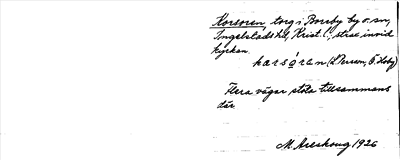 Korsoren, torg i Borrby by o. sn,
Ingelstads hd, Krist. l., strax invid
kyrkan.
karsǫ́ren (L. Persson, Ö. Hoby)
Flera vägar stöta tillsammans
där.
M. Areskoug 1926